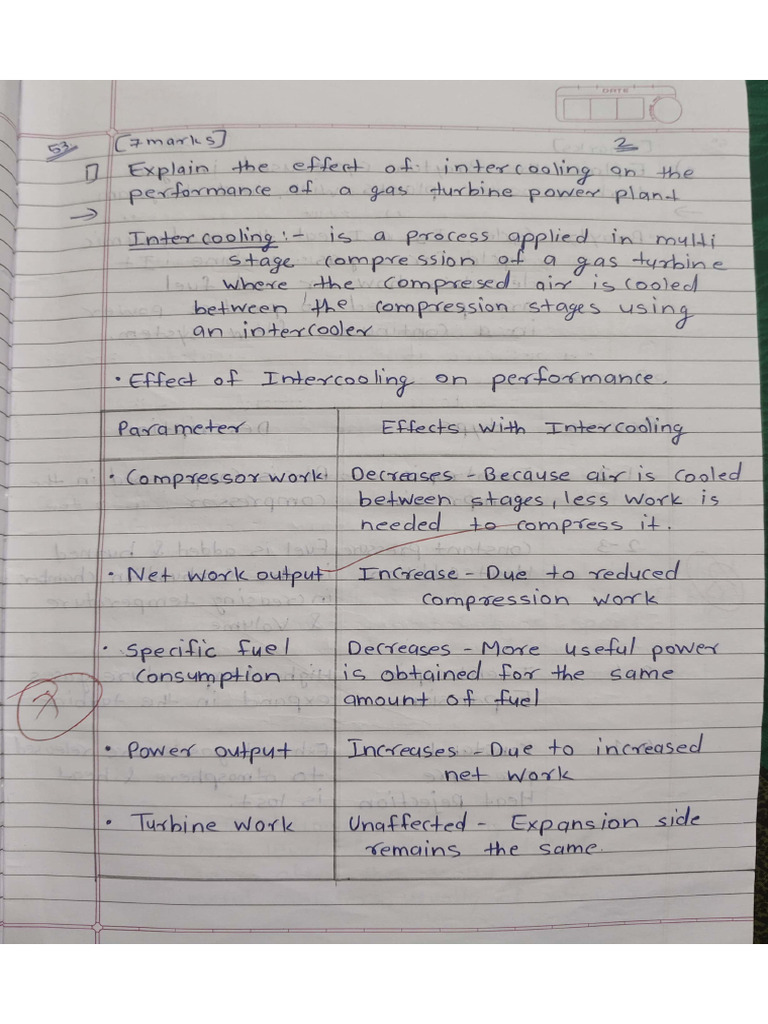 DATE
53.
[7 marks]
2
1] Explain the effect of intercooling on the
performance of a gas turbine power plant
→
Intercooling :- is a process applied in multi
stage compression of a gas turbine
where the compresed air is cooled
between the compression stages using
an intercooler
• Effect of Intercooling on performance.
Parameter Effects with Intercooling
• Compressor work Decreases - Because air is cooled
between stages, less work is
needed to compress it.
• Net work output Increase - Due to reduced
compression work
• Specific fuel Decreases - More useful power
consumption is obtained for the same
amount of fuel
7
• Power output Increases - Due to increased
net work
• Turbine work Unaffected - Expansion side
remains the same.